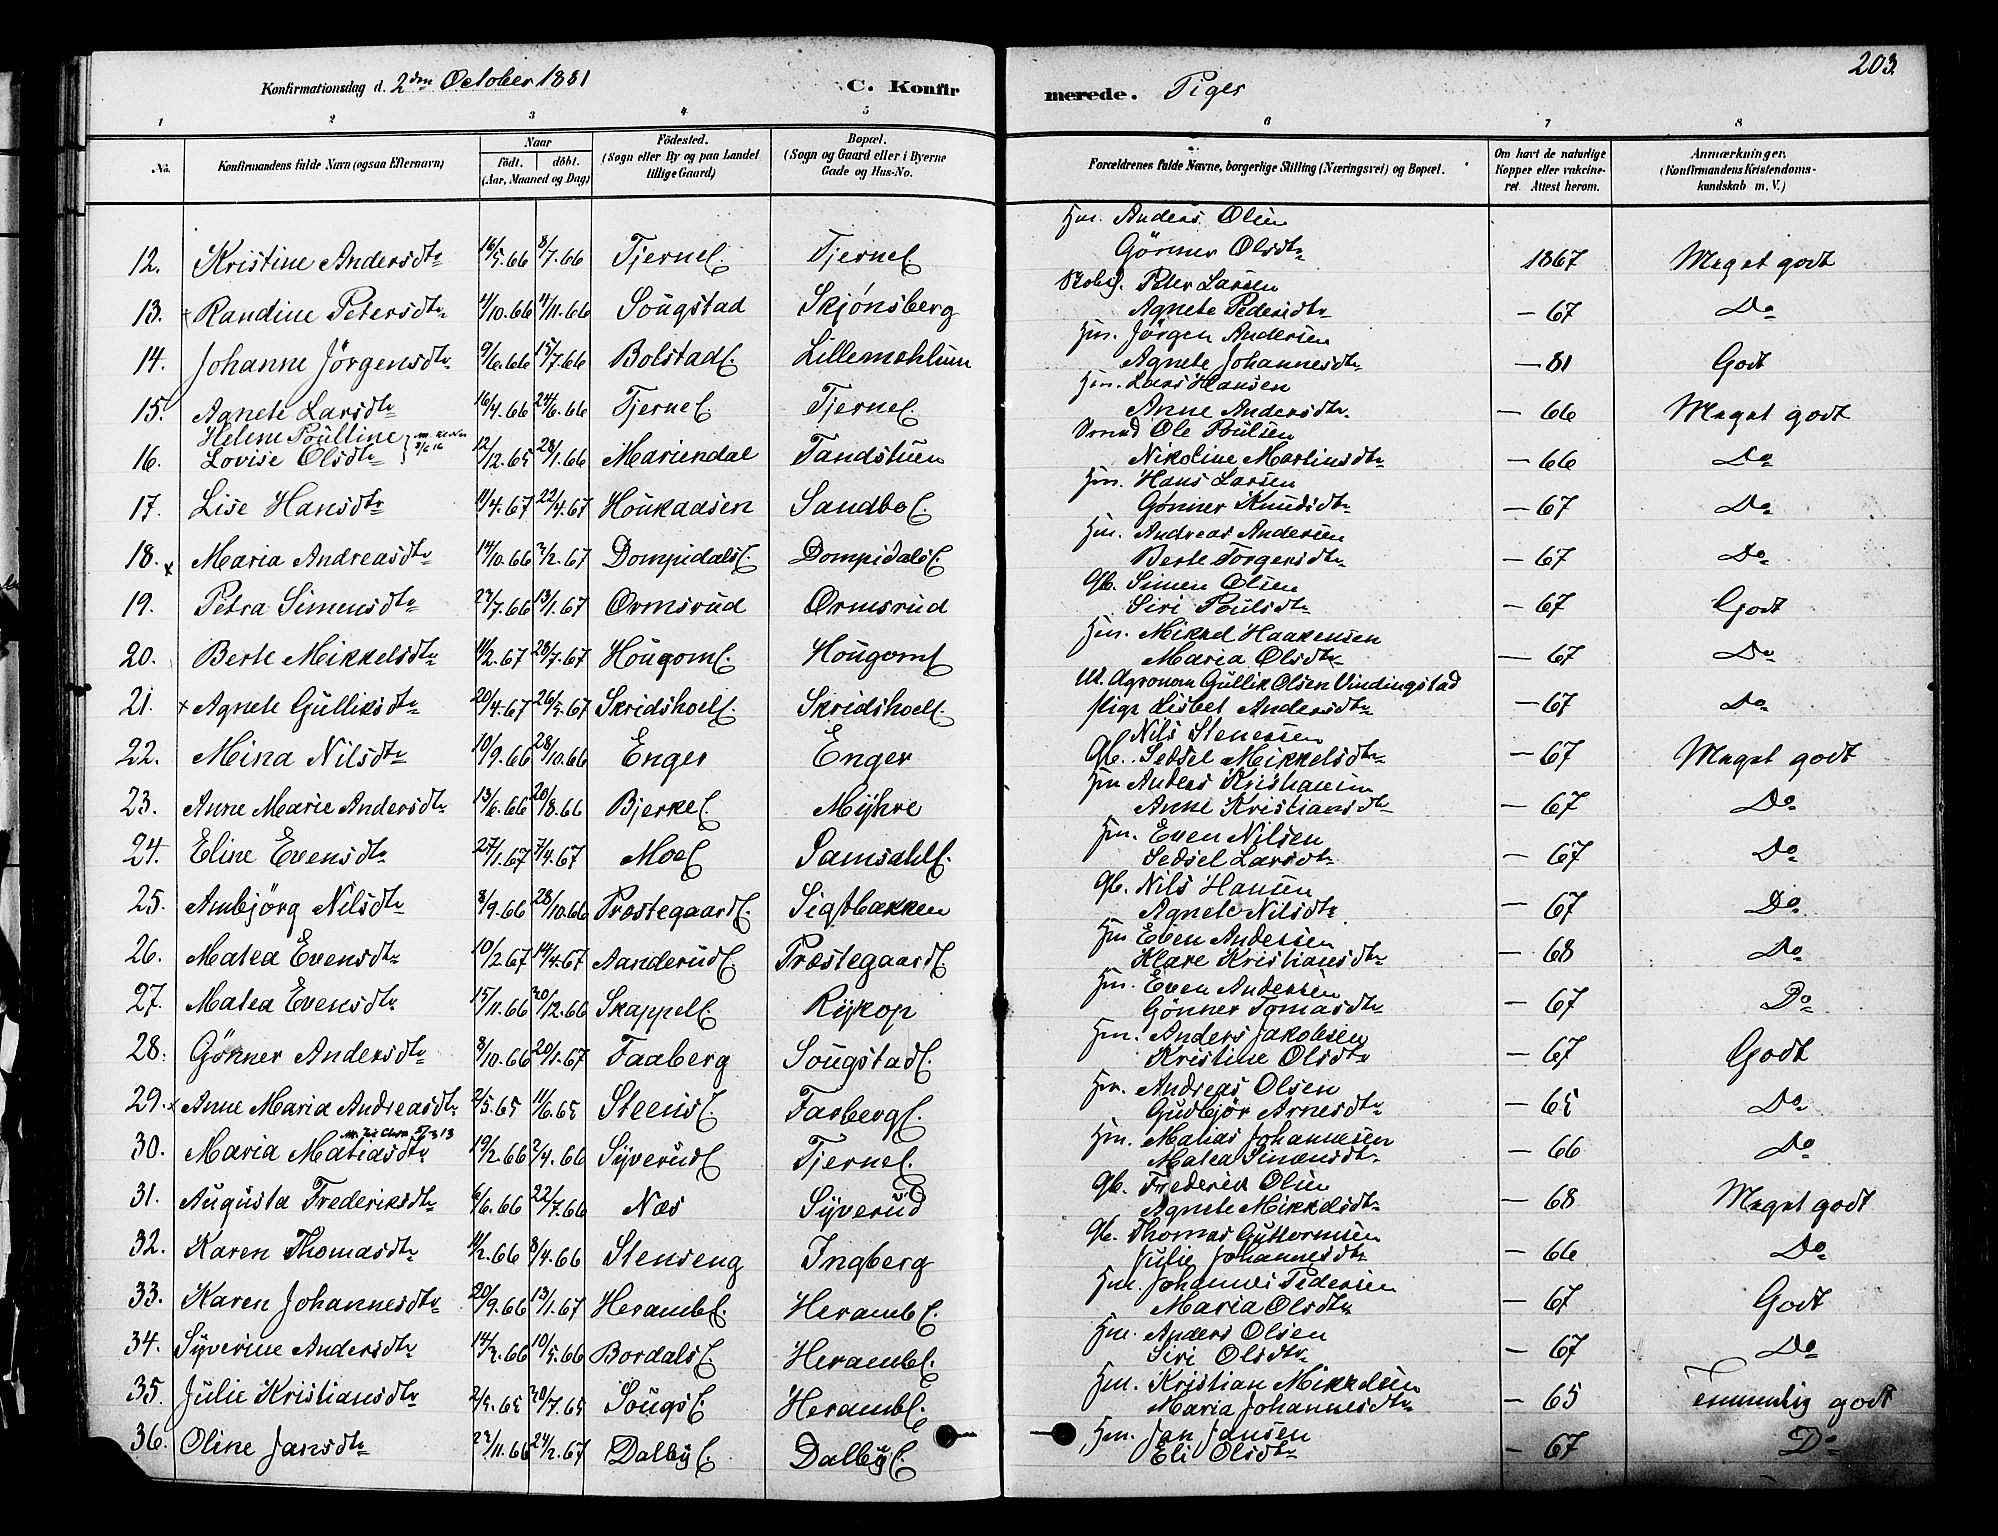 203.
Konfirmationsdag d. 2den October 1881
C. Konfirmerede. Piger
1 2 3 4 5 6 7 8
No. Konfirmandens fulde Navn (ogsaa Efternavn) Naar født. døbt. (Aar, Maaned og Dag) Födested. (Sogn eller By og paa Landet tillige Gaard) Bopæl. (Sogn og Gaard eller i Byerne Gade og Hus-No. Forældrenes fulde Navne, borgerlige Stilling (Næringsvei) og Bopæl. Om havt de naturlige Kopper eller vakcineret. Attest herom. Anmærkninger, (Konfirmandens Kristendomskundskab m. V.)
Hm. Anders Olsen
12. Kristine Andersdtr 16/5.66 8/7.66 TjerneC. Tjerne Gönner Olsdtr 1867 Meget godt
Peter Larsen
13. x Randine Petersdtr 4/10.66 4/11.66 Sougstad Skjönsberg Agnete Pedersdtr - 67 Do
Hm. Jörgen Andersen
14. Johanne Jörgensdtr 9/6.66 15/7.66 Bolstad Lillemehlum Agnete Johannesdtr - 81 Godt
Hm. Lars Hansen
15. Agnete Larsdtr 16/4.66 24/6.66 Tjerne Tjerne Anne Andersdtr. - 66 Meget godt
Helene Poulline
Ole Poulsen
16. Lovise Olsdtr 12/12.65 28/1.66 Mariendal Tandstuen Nikoline Martinsdtr - 66 Do
Hm. Hans Larsen
17. Lise Hansdtr 11/4.67 22/4.67 Houkaasen Sandbo Gönner Knudsdtr - 67 Do
Hm. Andreas Andersen
18. x Maria Andreasdtr 14/10.66 2/2.67 Dompidals Dompidals Berte Torgersdtr - 67 Do
Gb. Simen Olsen
19. Petra Simensdtr 23/7.66 13/1.67 Ormsrud Ormsrud Siri Poulsdtr - 67 Godt
Hm. Mikkel Haakensen
20. Berte Mikkelsdtr 11/2.67 28/7.67 Hougom Hougom Maria Olsdtr - 67 Do
U. Agronom Gullik Olsen Vindingstad
21. x Agnete Gulliksdtr 20/4.67 26/5.67 Skridshol Skridshol Pige Lisbet Andersdtr - 67 Do
Nils Stenersen
22. Mina Nilsdtr 10/9.66 28/10.66 Enger Enger Gb. Sedsel Mikkelsdtr - 67 Meget godt
Hm Anders Kristiansen
23. Anne Marie Andersdtr 13/6.66 20/8.66 Bjerke Myhre Anne Kristiansdtr - 67 Do
Hm. Even Nilsen
24. Eline Evensdtr 27/1.67 7/4.67 Moe Samsahl Sedsel Larsdtr - 67 Do
Gb. Nils Hansen
25. Ambjörg Nilsdtr 8/9.66 28/10.66 Præstegaard Sigstbakken Agnete Nilsdtr - 67 Do
Hm Even Andersen
26. Matea Evensdtr 10/2.67 14/4.67 Aanderud Præstegaard Klare Kristiansdtr - 68 Do
Hm. Even Andersen
27. Matea Evensdtr 15/11.66 30/12.66 Skappel Rykop Gönner Tomasdtr - 67 Do
Hm. Anders Jakobsen
28. Gönner Andersdtr 8/10.66 20/1.67 Faaberg Sougstad Kristine Olsdtr - 67 Godt
Hm. Andreas Olsen
29. x Anne Maria Andreasdtr 2/5.65 11/6.65 Steens Faaberg Gudbjör Arnesdtr - 65 Do
Hm. Matias Johannesen
30. Maria Matiasdtr 19/2.66 2/4.66 Syverud Tjerne Matea Simensdtr - 66 Do
Gb. Frederik Olsen
31. Augusta Frederiksdtr 6/6.66 22/7.66 Næs Syverud Agnete Mikkelsdtr - 68 Meget godt
Gb. Thomas Guttormsen
32. Karen Thomasdtr 11/2.66 8/4.66 Stenseng Ingberg Julie Johannesdtr - 66 Do
Hm Johannes Pedersen
33. Karen Johannesdtr 20/9.66 13/1.67 Heramb Heramb Maria Olsdtr - 67 Godt
Hm. Anders Olsen
34. Syverine Andersdtr 14/3.66 10/5.66 Bordals Heramb Siri Olsdtr - 67 Do
Hm. Kristian Mikkelsen
35. Julie Kristiansdtr 2/5.65 30/7.65 Sougs Heramb Maria Johannesdtr - 65 Temmelig godt
Hm. Jan Jansen
36. Oline Jansdtr 23/11.66 24/2.67 Dalby Dalby Eli Olsdtr - 67 Do